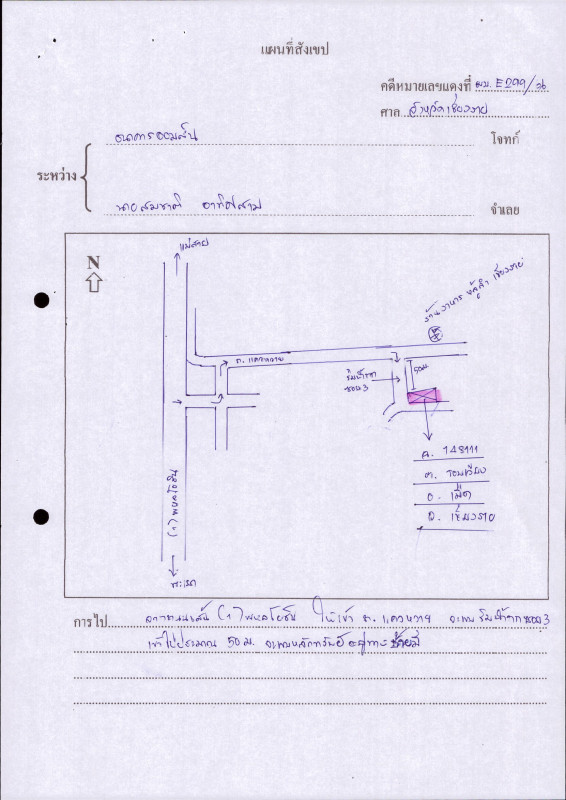 แผนที่สังเขป
คดีหมายเลขแดงที่ ผบ. E299/36
ศาล จังหวัดเชียงราย
ธนาคารออมสิน โจทก์
ระหว่าง
นายสมชาติ จำเลย
แม่สาย
N
ร้านอาหาร เชียงราย
ถ. แควหวาย
50 ม.
ริมน้ำกก
ซอย 3
ด. 148111
ต. รอบเวียง
อ. เมือง
จ. เชียงราย
(1) พหลโยธิน
พะเยา
การไป จากถนนเส้น (1) พหลโยธิน ให้เข้า ถ. แควหวาย จะพบ ริมน้ำกกซอย 3
เข้าไปประมาณ 50 ม. จะพบหลักทรัพย์อยู่ทางซ้ายมือ